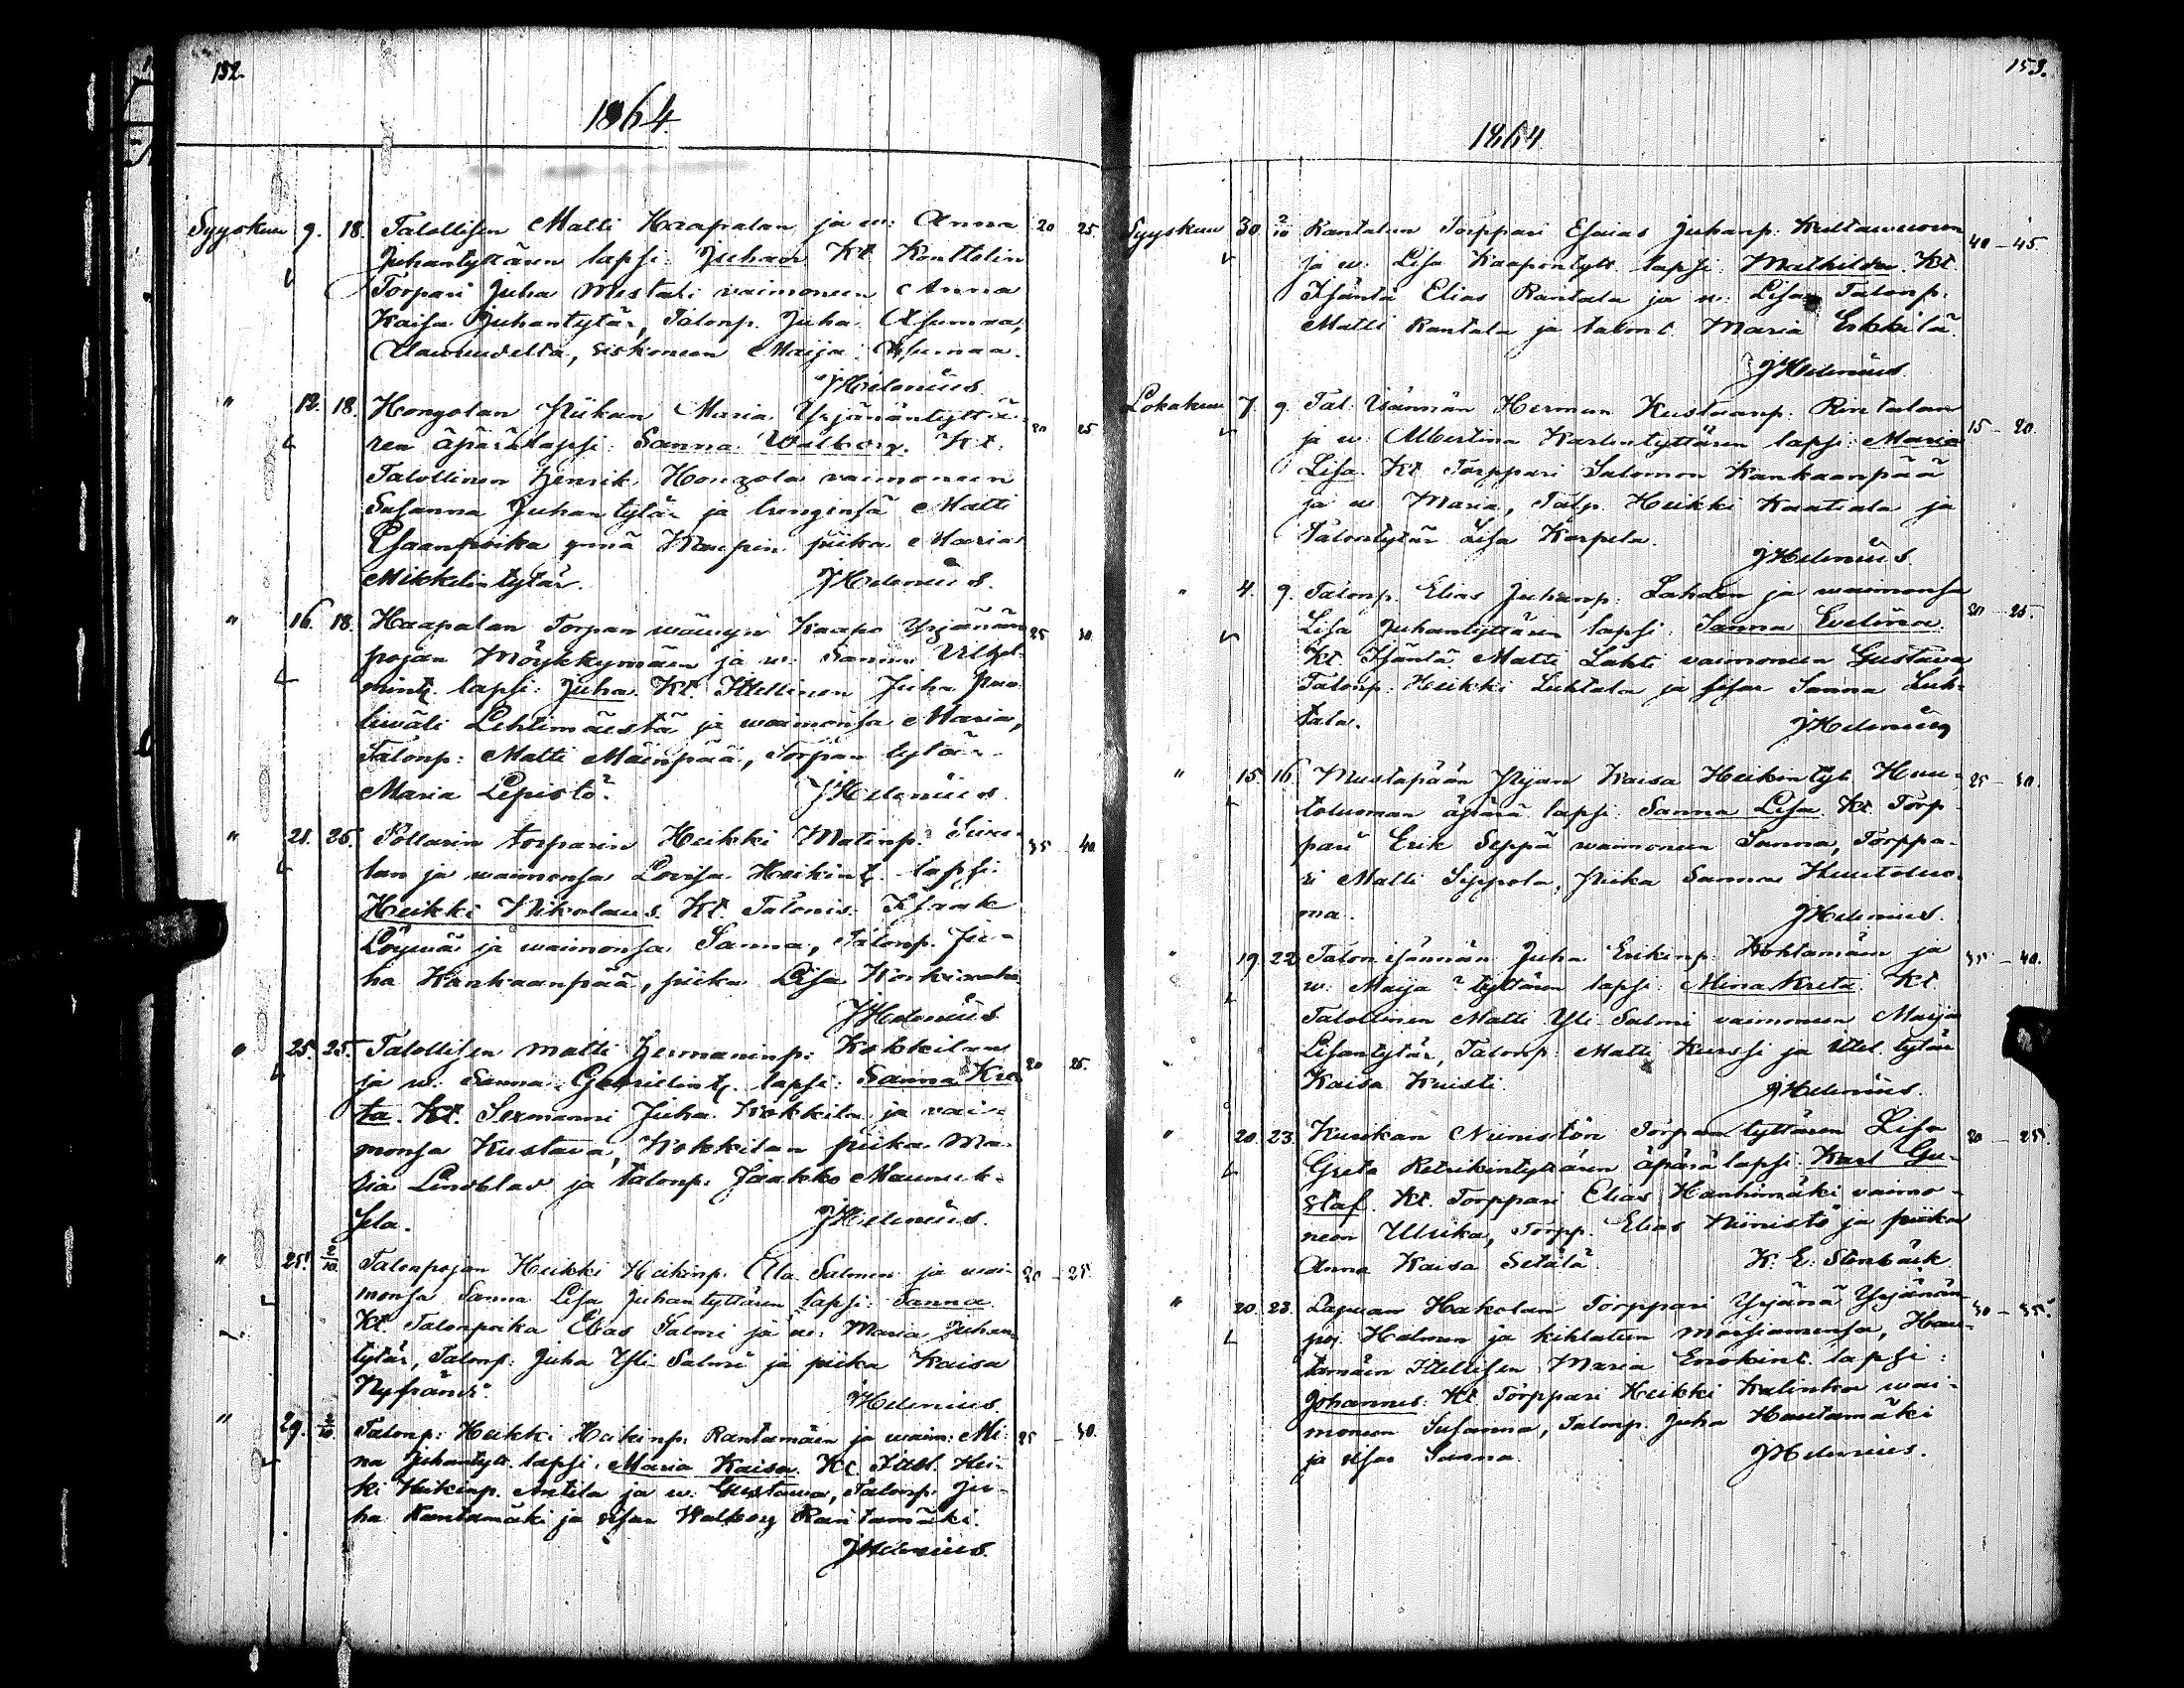 152.
1864.
Syyskuu 9. 18. Talollisen Matti Haapalan ja w: Anna 20 25.
Juhantyttären lapsi: Juhan Kt. Konttolin
Torpari Juha Mestali vaimoneen Anna
Kaisa Juhantytär, Talonp. Juha
Alavuudelta, siskoneen Maija
JHelenius.
" 12. 18. Hongolan Piikan Maria Yrjänäntyttä- 20 25
ren äpärälapsi: Sanna Walborg. Kt.
Talollinen Henrik Hongola vaimoneen
Susanna Juhantytär ja Matti
Esaanpoika ynnä piika Maria
Mikkelintytär. JHelenius.
" 16. 18. Haapalan Torpan Kaapo Yrjänän 25 30.
pojan Möykkymäen ja w: Sanna
lapsi: Juha. Kt. Ittellinen Juha
Lehtimäestä ja waimonsa Maria,
Talonp: Matti Mäenpää, Torpan tytär
Maria Lepistö. JHelenius.
" 21. 25. Pollarin torparin Heikki Matinp. 35 40
lan ja waimonsa Lovisa Heikint. lapsi:
Heikki Nikolaus. Kt. Talonis. Isaak
Löywä ja waimonsa Sanna, Talonp. Ju-
ha Kankaanpää, piika Lisa
JHelenius.
" 25. 25. Talollisen Matti Hermaninp: Kokkilan 20 25.
ja w: Sanna Gabrielint. lapsi: Sanna Kre
ta. Kt. Sexmanni Juha Kokkila ja vai-
monsa Kustava, Kokkilan piika Ma-
ria Lindblad ja talonp. Jaakko Maunuk-
sela. JHelenius.
" 25. 2/10 Talonpojan Heikki Heikinp: Ala Salmen ja wai- 20 - 25.
monsa Sanna Lisa Juhantyttären lapsi: Sanna
Kt. Talonpoika Elias Salmi ja w: Maria Juhan
tytär, Talonp: Juha Yli Salmi ja piika Kaisa
JHelenius
" 29. 2/10 Talonp: Heikki Heikinp: Rantamäen ja waim: Mi 25 - 30.
na Juhantytt. lapsi: Maria Kaisa. Kt. Ittell. Hei-
ki Heikinp. Antila ja w: Gustava, Talonp: Ju-
ha Rantamäki ja sisar Walborg Rantamäki.
JHelenius.
153.
1864.
Syyskuu 30. 2/10 Rantalan Torppari Esaias Juhanp: 40 - 45.
ja w: Lisa Kaapontytt. lapsi: Mathilda. Kt.
Isäntä Elias Rantala ja w: Lisa, Talonp.
Matti Rantala ja talont. Maria Erkkilä.
JHelenius.
Lokakuu 7. 9. Tal: Isännän Herman Kustaanp. Rintalan 15 - 20.
ja w: Albertina Karlintyttären lapsi: Maria
Lisa. Kt. Torppari Salomon Kankaanpää
ja w: Maria, Talp. Heikki Kaatiala ja
Talontytär Lisa Karpela.
JHelenius.
" 4. 9. Talonp. Elias Juhanp: Lahden ja waimonsa 20 - 25.
Lisa Juhantyttären lapsi: Sanna Evelina
Kt. Isäntä Matti Lahti vaimoneen Gustava
Talonp. Heikki Luhtala ja sisar Sanna Luh-
tala. JHelenius
" 15 16. Mustapään Pijan Kaisa Heikintyt. Huu- 25 - 30.
toluoman äpärä lapsi: Sanna Lisa. Kt. Torp-
pari Erik Seppä waimoneen Sanna, Torppa-
ri Matti Seppola, Piika Sanna Huutoluo-
ma. JHelenius.
" 19 22 Talon isännän Juha Erikinp: Kohtamäen ja 35 - 40.
w: Maija ? tyttären lapsi: Mina Kreta. Kt.
Talollinen Matti Yli Salmi vaimoneen Maija
Lisantytär, Talonp: Matti Kurssi ja ittel. tytär
Kaisa Kuisti. JHelenius.
" 20. 23. Kurikan Niinistön Torpan tyttären Lisa 20 - 25
Greta äpärä lapsi: Karl Gu-
staf. Kt. Torppari Elias Hanhimäki vaimo-
neen Ulrika, Torpp. Elias Niinistö ja piika
Anna Kaisa Setälä. K. E. Stenbäck
" 20. 23. Lapuan Hakolan Torppari Yrjänä Yrjänän- 30 - 35.
poj. Holmen ja kihlatun morsiamensa, Hau-
tamäen Ittellisen Maria Enokint. lapsi:
Johannes. Kt. Torppari Heikki wai-
moneen Susanna, Talonp. Juha Hautamäki
ja sisar Sanna. JHelenius.